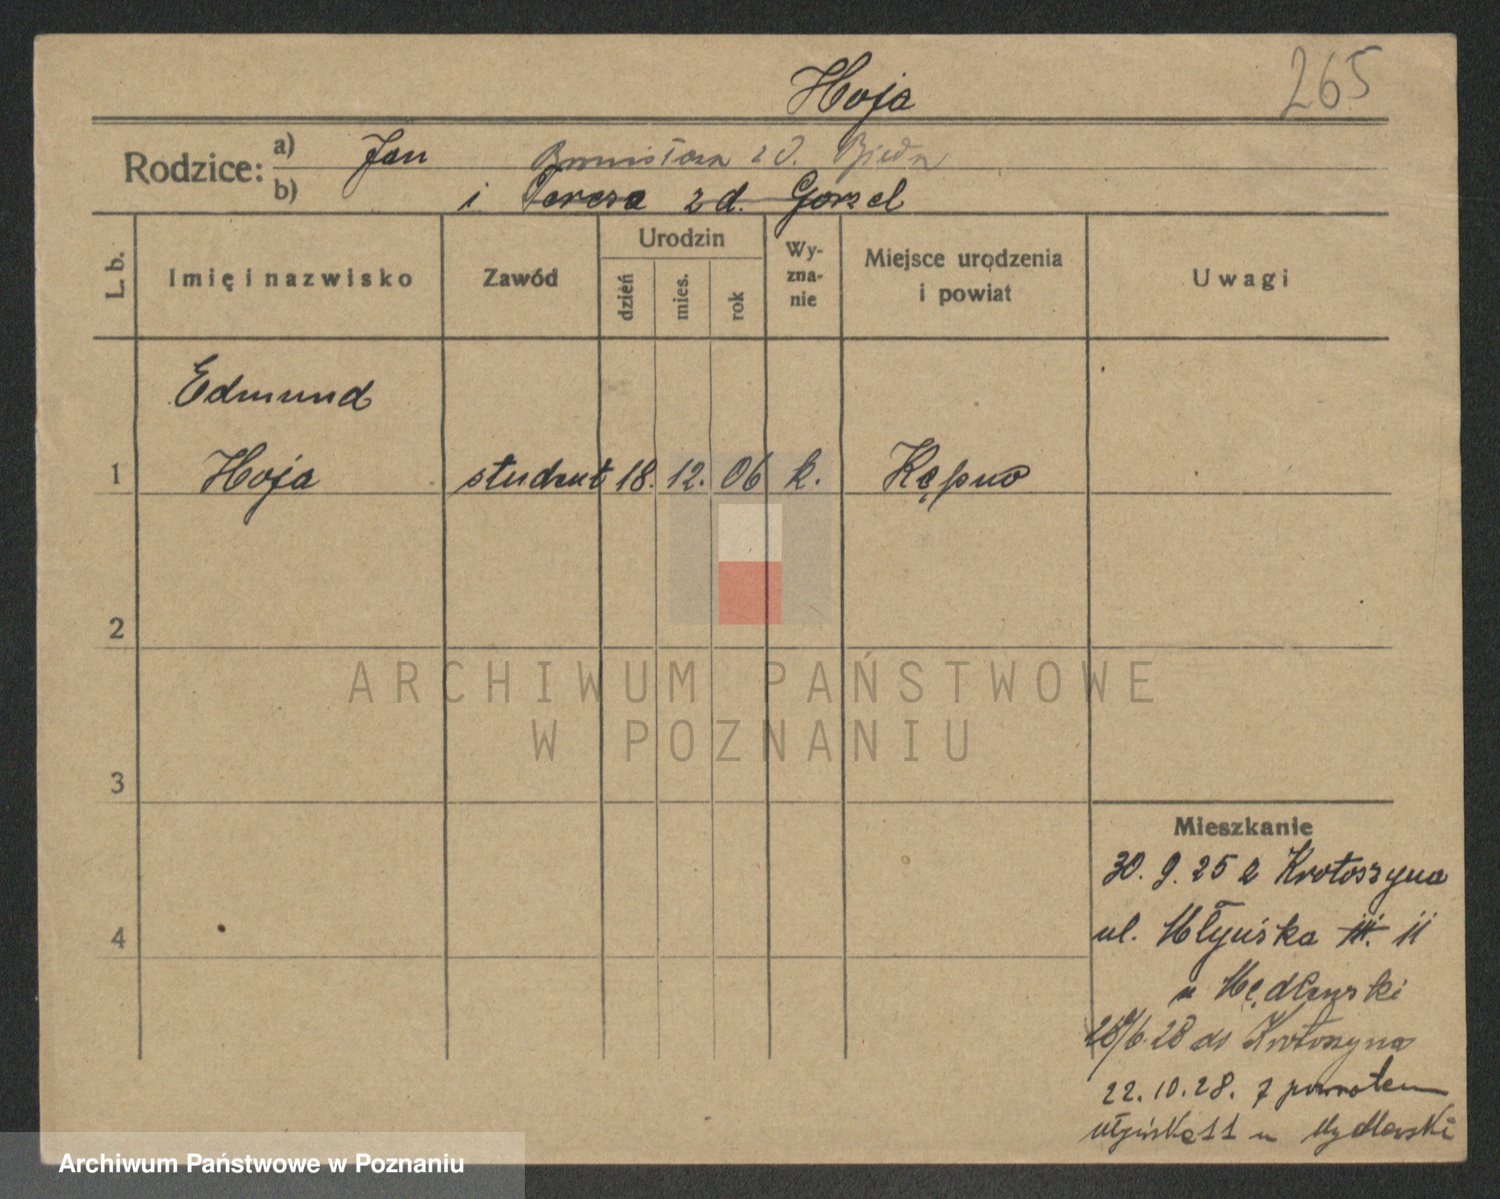 Hoja
265
Rodzice:
a) Jan Bronisława z d. Bieda
b) i Teresa zd. Gorzel
L. b.
Imię i nazwisko
Zawód
Urodzin
dzień
mies.
rok
Wy-
zna-
nie
Miejsce urodzenia
i powiat
Uwagi
Edmund
1 Hoja student 18. 12. 06 k. Kępno
2
ARCHIWUM PAŃSTWOWE
W POZNANIU
3
Mieszkanie
30. 9. 25 z Krotoszyna
4
ul. Młyńska III. 11
u
28/6. 28 do Krotoszyna
22. 10. 28. z powrotem
Młyńska 11 u Mydlewski
Archiwum Państwowe w Poznaniu